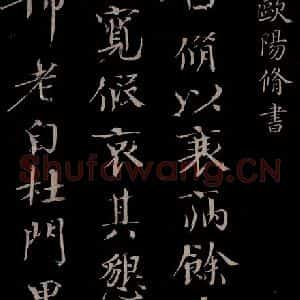 歐陽脩書
脩以衰病餘
寬假哀其懇
老自杜門
Shufawang.CN